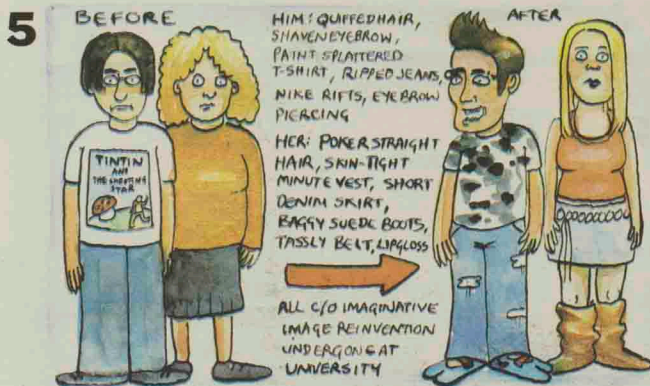 5
BEFORE
TINTIN
AND
THE SHOOTING
STAR
HIM: QUIFFED HAIR,
SHAVEN EYEBROW,
PAINT SPLATTERED
T-SHIRT, RIPPED JEANS,
NIKE RIFTS, EYEBROW
PIERCING
HER: POKER STRAIGHT
HAIR, SKIN-TIGHT
MINUTE VEST, SHORT
DENIM SKIRT,
BAGGY SUEDE BOOTS,
TASSLY BELT, LIPGLOSS
ALL C/O IMAGINATIVE
IMAGE REINVENTION
UNDERGONE AT
UNIVERSITY
AFTER